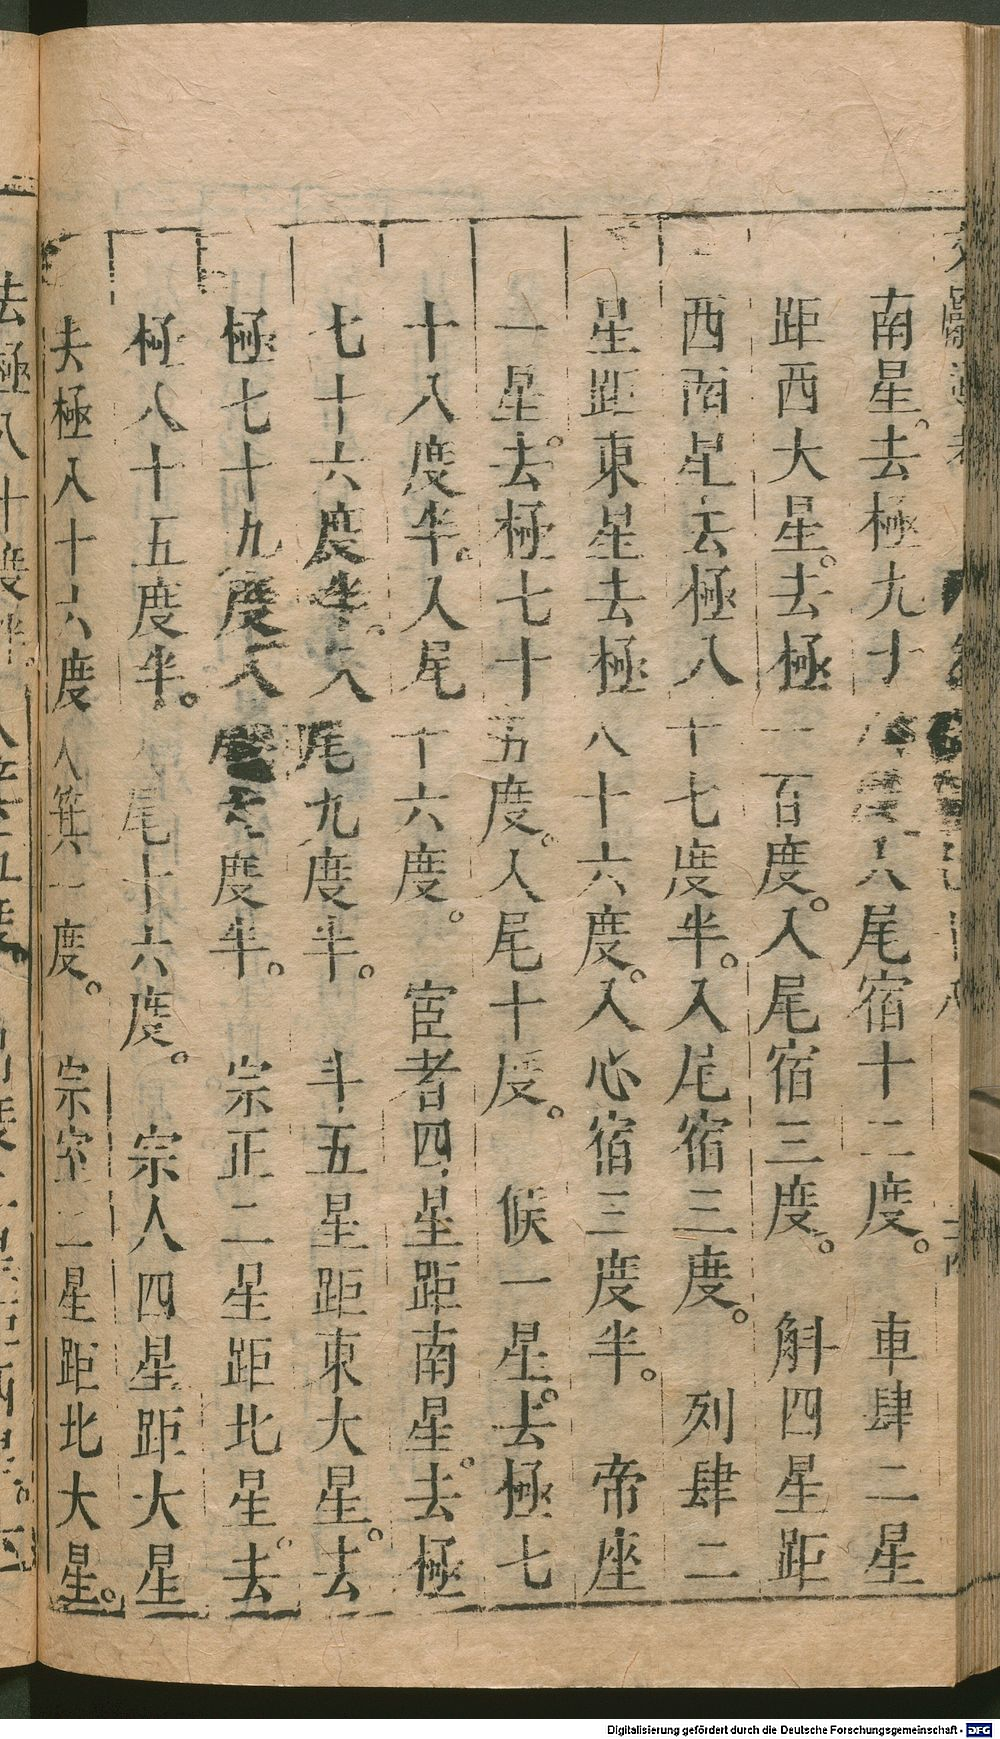 南星。去極九十度入尾宿十二度。　車肆二星
距西大星。去極一百度。入尾宿三度。　斛四星距
西南星去極八十七度半。入尾宿三度。　列肆二
星距東星去極八十六度。入心宿三度半。　帝座
一星。去極七十五度。入尾十度。　候一星。去極七
十八度半。入尾十六度。　宦者四星距南星。去極
七十六度半。入尾九度半。　斗五星距東大星。去
極七十九度入度半。　宗正二星距北星。去
極八十五度半。入尾十六度。　宗人四星距大星
去極八十六度入箕一度。　宗室二星距北大星。
Digitalisierung gefördert durch die Deutsche Forschungsgemeinschaft - DFG